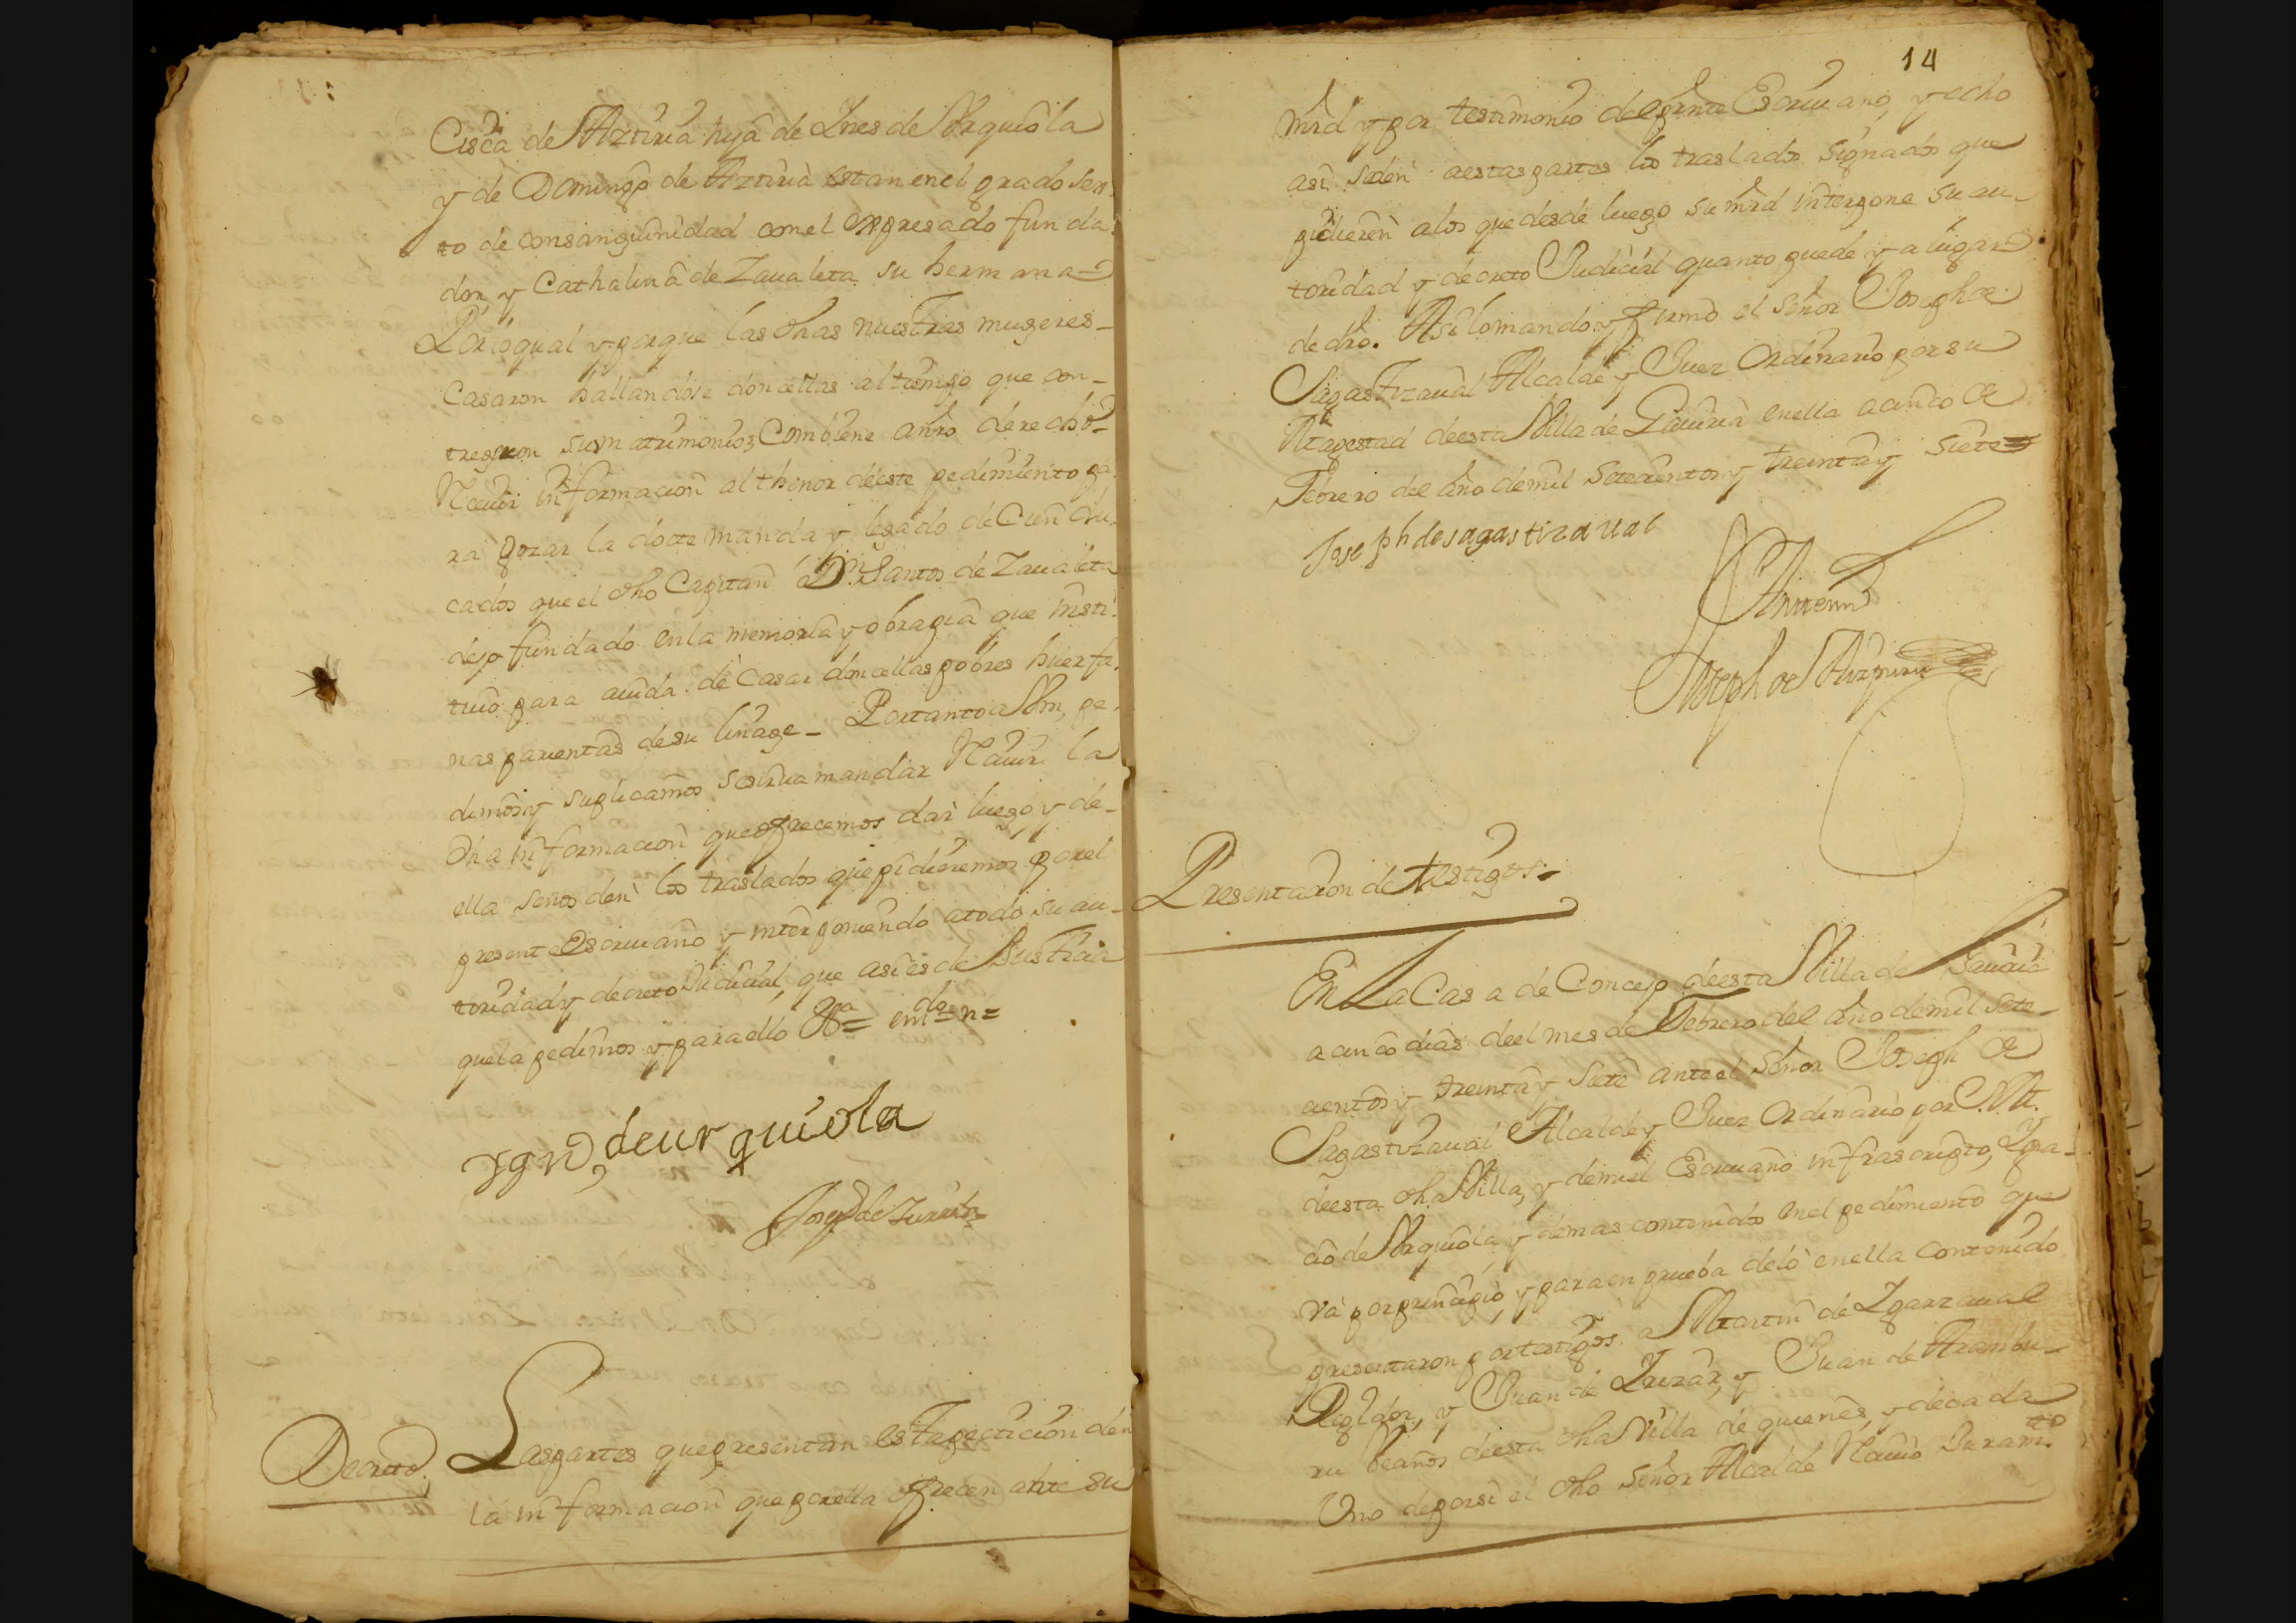 Cisca de Azttiria hija de Ynes de Vrquiola
y de Domingo de Azttiria estan en el grado sex
to de consanguinidad con el expresado funda
dor, y Cathalina de Zaualeta su hermana
Por lo qual y porque las dhas nuestras mugeres
Casaron hallandose doncellas al tiempo que con-
trajeron su matrimonio, Combiene a nro derecho
Rauir informacion al thenor de este pedimiento pa
ra gozar la dotte manda y legado de Cien du
cados que el dho Capitan Dn. Santos de Zaualeta
dejo fundado en la memoria y obrapia que insti
tuio para aiuda de Casar doncellas pobres huerfa
nas parientas de su linage - Por tanto a Vm, pe
dimos y suplicamos se sirua mandar Rauir la
dha informacion que ofrecemos dar luego y de-
ella se nos den los traslados que pidieremos por el
presente Escriuano y interponiendo a todo su au-
toridad y decreto Judicial, que asi es de Justicia
que la pedimos y para ello Va= emdo=n=
ygnº, de urquiola
Joseph de
Decretto, Las partes que presentan esta peticion den
la informacion que por ella ofrecen ante su
14
mrd y por testimonio del prnte Escriuano, y echo
asi se den a estas partes los traslados signados que
pidieren a los que desde luego su mrd interpone su au-
toridad y decreto Judicial quanto puede y a lugar
de dro. Asi lo mando y firmo el Señor Joseph de
Sagastizaual Alcalde y Juez Ordinario por su
Magestad de esta Villa de Gauiria en ella a cinco de
Febrero del año de mil setecientos y treinta y siete
Joseph de sagastizaual
Ante mi
Joseph de Aizpuru
Presentacion de testigos.
En La Casa de Concejo de esta Villa de Gauiria
a cinco dias de el mes de Febrero del año de mil sete-
cientos y treinta y siete ante el señor Joseph de
Sagastizaual Alcalde y Juez Ordinario por S.M.
de esta dha Villa, y de mi el Escriuano infrascripto, Ygna-
cio de Vrquiola, y demas contenidos en el pedimiento que
va por principio, y para en prueba de lo en ella Contenido
presentaron por testigos. a Martin de Ygarzaual
Regidor, y Juan de Yrizar, y Juan de Arambu-
ru Veçinos de esta dha Villa de quienes y de cada
Uno de por si el dho Señor Alcalde Rauio Juramto